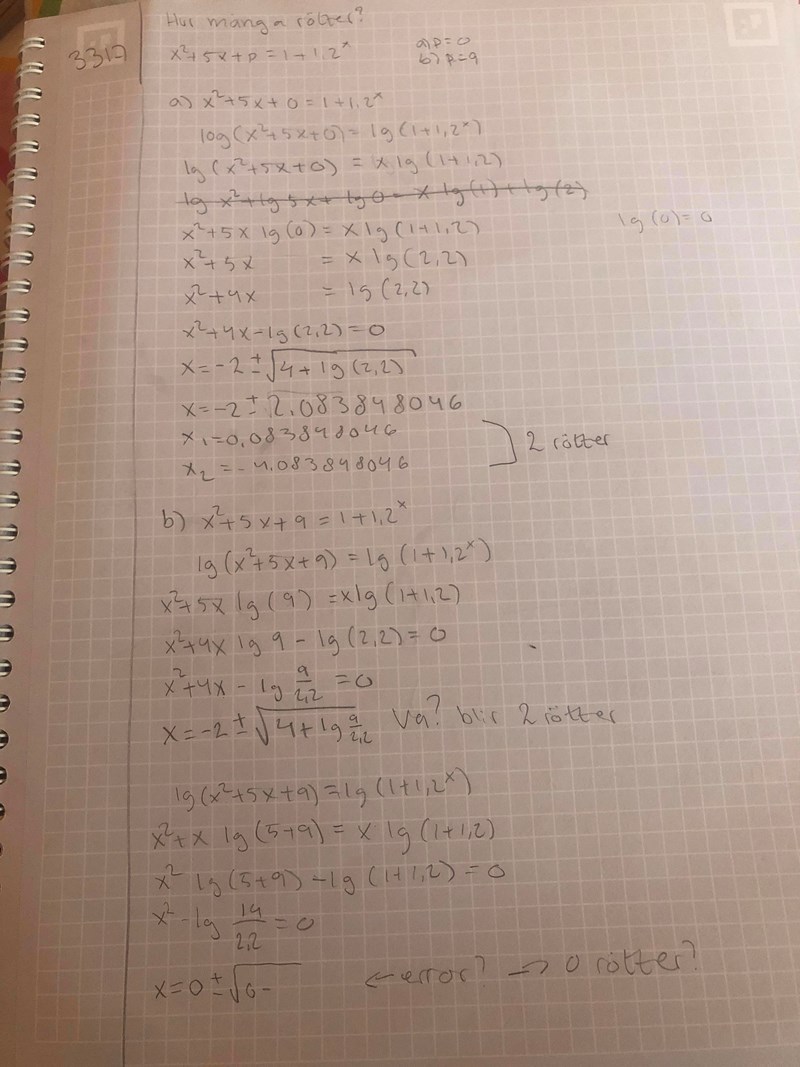 Hur många rötter?
3317
x²+5x+p=1+1,2ˣ
a) p=0
b) p=9
a) x²+5x+0=1+1,2ˣ
log(x²+5x+0)=lg(1+1,2ˣ)
lg(x²+5x+0) = x lg(1+1,2)
lg x²+lg 5x+lg 0 = x lg(1)+lg(2)
x²+5x lg(0)=x lg(1+1,2)
lg(0)=0
x²+5x = x lg(2,2)
x²+4x = lg(2,2)
x²+4x-lg(2,2)=0
x=-2±√4+lg(2,2)
x=-2±2.083848046
x₁=0,083848046
x₂=-4.083848046
2 rötter
b) x²+5x+9=1+1,2ˣ
lg(x²+5x+9)=lg(1+1,2ˣ)
x²+5x lg(9)=xlg(1+1,2)
x²+4x lg 9 - lg(2,2)=0
x²+4x - lg 9/2,2 =0
x=-2±√4+lg 9/2,2 Va? blir 2 rötter
lg(x²+5x+9)=lg(1+1,2ˣ)
x²+x lg(5+9)= x lg(1+1,2)
x² lg(5+9)-lg(1+1,2)=0
x²-lg 14/2,2 =0
x=0±√0- ←error? → 0 rötter?